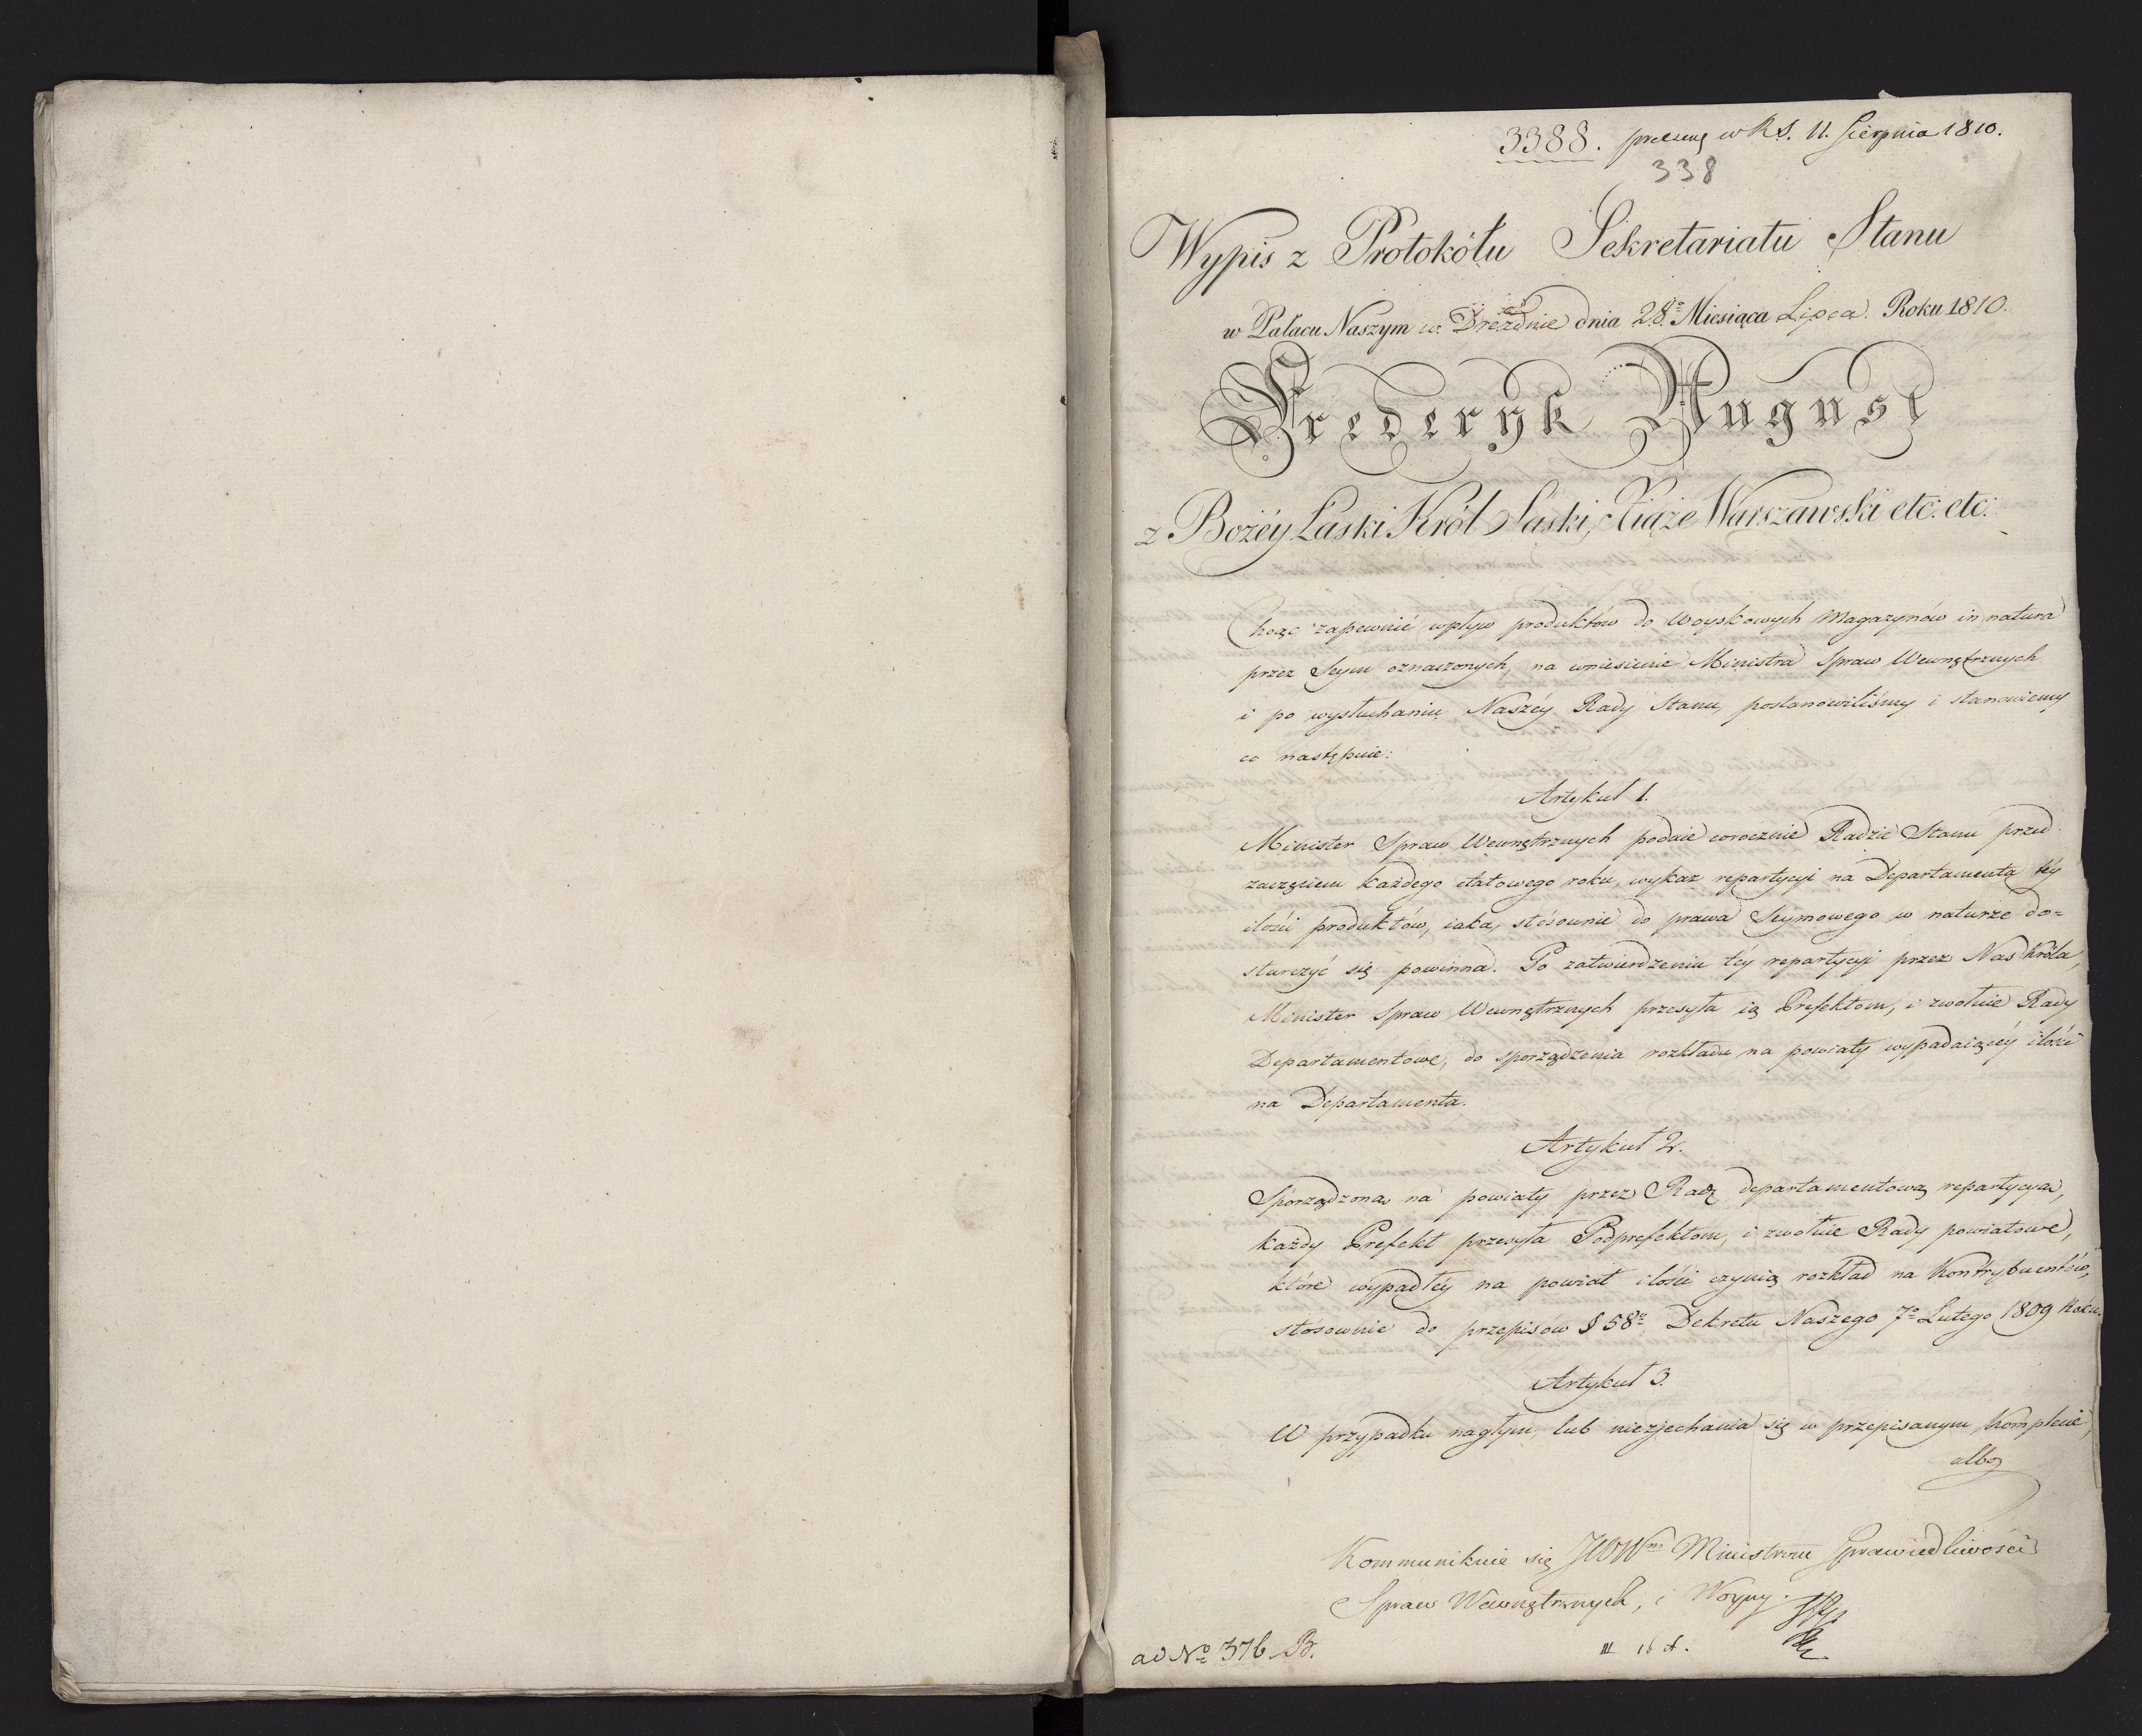 3388. w R S. 11. Sierpnia 1810.
338
Wypis z Protokółu Sekretariatu Stanu
w Pałacu Naszym w Dreźdnie dnia 28º Miesiąca Lipca. Roku 1810.
Frederyk August
z Bożéy Łaski Król Saski, Xiąże Warszawski etc: etc:
Chcąc zapewnić wpływ produktów do Woyskowych Magazynów in natura
przez Seym oznaczonych, na wniesienie Ministra Spraw Wewnętrznych
i po wysłuchaniu Naszéy Rady Stanu, postanowiliśmy i stanowiemy
co następuie:
Artykuł 1.
Minister Spraw Wewnętrznych podaie corocznie Radzie Stanu przed
zaczęciem każdego etatowego roku, wykaz repartycyi na Departamenta téy
ilości produktów, iaka, stósownie do prawa Seymowego w naturze do=
starczyć się powinna. Po zatwierdzeniu téy repartycyi przez Nas Króla,
Minister Spraw Wewnętrznych przesyła ią Prefektom, i zwołuie Rady
Departamentowe, do sporządzenia rozkładu na powiaty wypadaiącéy ilości
na Departamenta.
Artykuł 2.
Sporządzoną na powiaty przez Radę departamentową repartycyą,
każdy Prefekt przesyła Podprefektom, i zwołuie Rady powiatowe,
które wypadłéy na powiat ilości czynią rozkład na Kontrybuentów,
stósownie do przepisów § 58º Dekretu Naszego 7º Lutego 1809 Roku.
Artykuł 3.
W przypadku nagłym, lub niezjechania się w przepisanym Komplecie,
albo
Kommunikuie się JWWm Ministrom Sprawiedliwości
Spraw Wewnętrznych, i Woyny.
ad Nº 376 B.